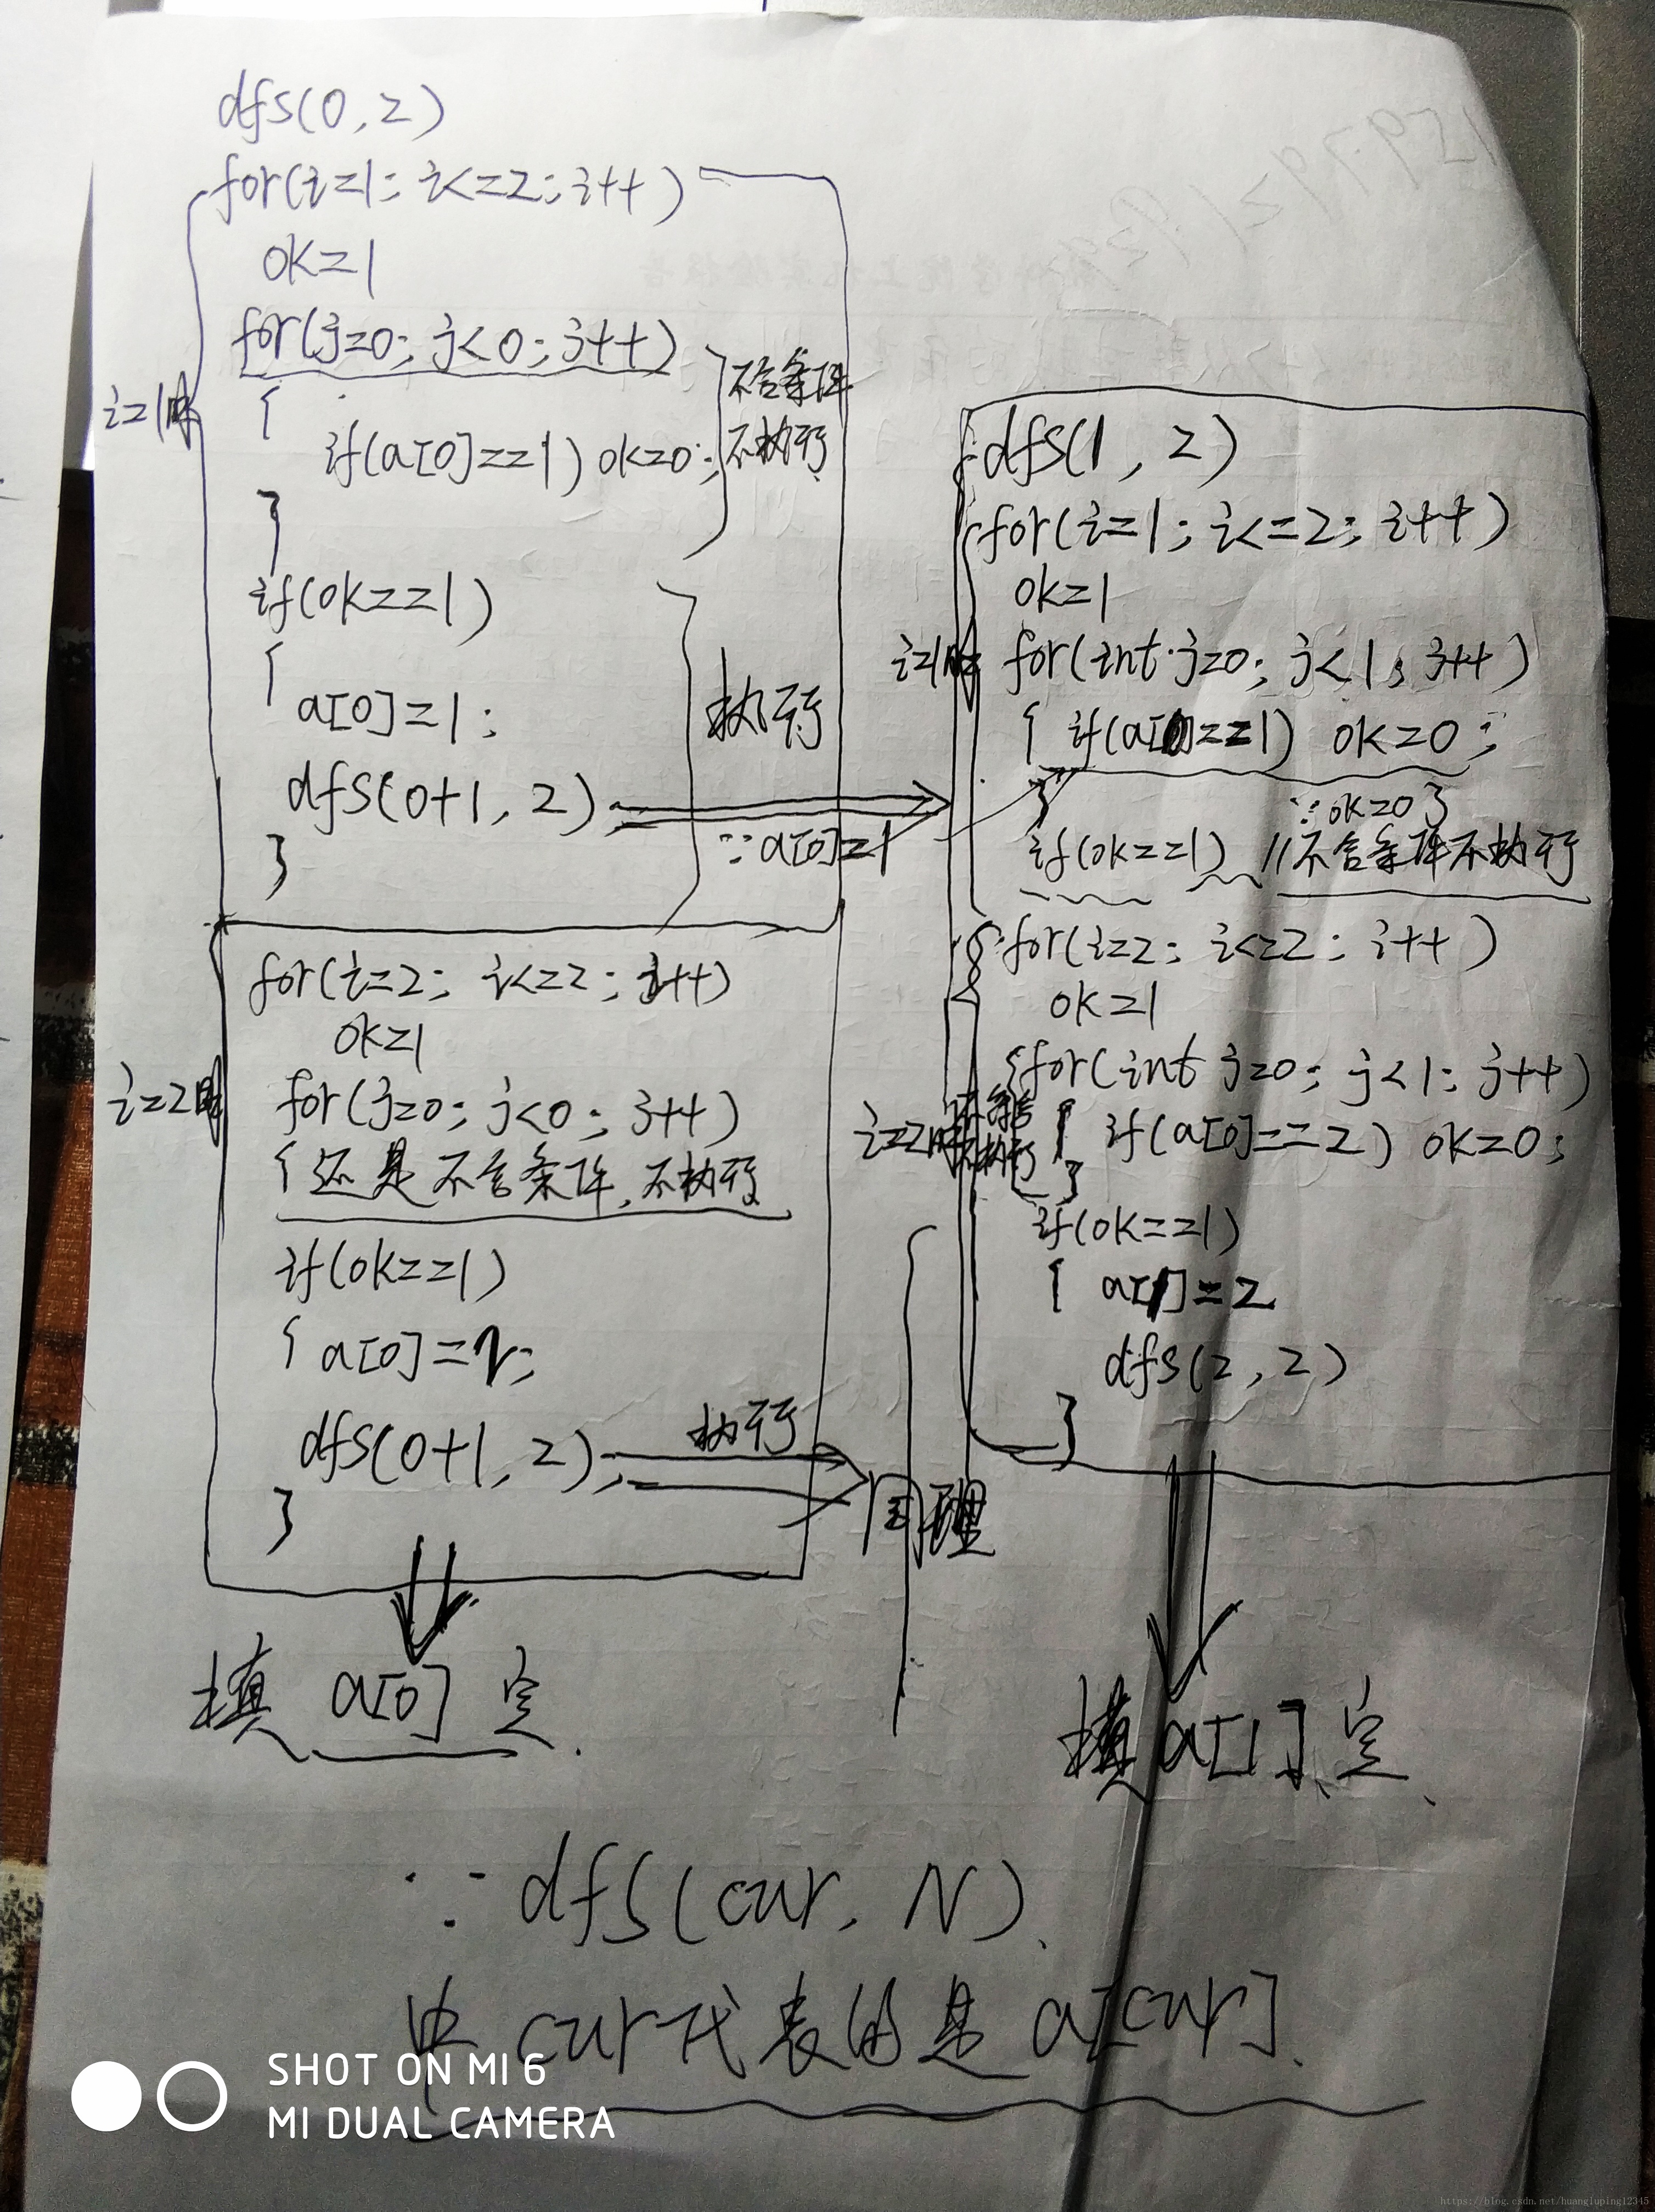 dfs(0,2)
for(i=1; i<=2; i++)
ok=1
for(j=0; j<0; j++)
{
if(a[0]==1) ok=0;
}
不合条件
不执行
i=1时
if(ok==1)
{
a[0]=1;
dfs(0+1,2);
}
执行
∵a[0]=1
for(i=2; i<=2; i++)
ok=1
i=2时
for(j=0; j<0; j++)
{还是不合条件,不执行
if(ok==1)
{ a[0]=2;
dfs(0+1,2);
}
执行
同理
填 a[0] 完.
dfs(1,2)
for(i=1; i<=2; i++)
ok=1
i=1时
for(int j=0; j<1; j++)
{ if(a[0]==1) ok=0;
}
∵ok=0
if(ok==1) //不合条件不执行
for(i=2; i<=2; i++)
ok=1
{for(int j=0; j<1; j++)
i=2时
执行
{ if(a[0]==2) ok=0;
}
if(ok==1)
{ a[1]=2
dfs(2,2)
}
填a[1]完.
∵dfs(cur,N).
中 cur代表的是 a[cur].
SHOT ON MI 6
MI DUAL CAMERA
https://blog.csdn.net/huangluping12345